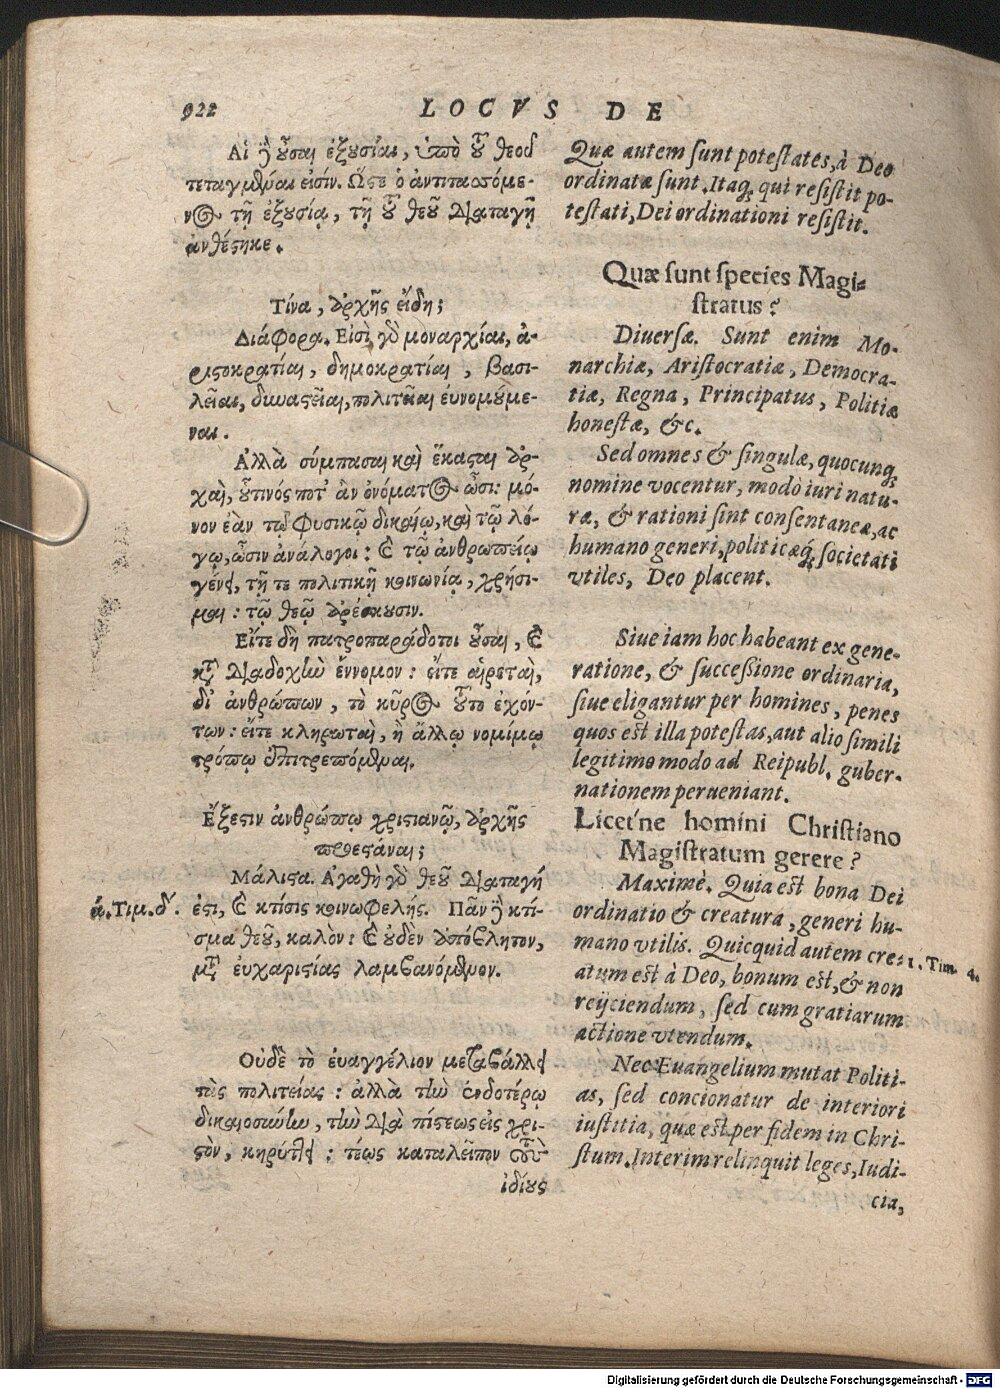 922 LOCVS DE
Αἱ ἢ οὖσαι ἐξουσίαι, ὑπὸ τοῦ θεοῦ
τεταγμέναι εἰσίν. Ὥστε ὁ ἀντιτασσόμε-
νος τῇ ἐξουσίᾳ, τῇ τοῦ θεοῦ διαταγῇ
ἀνθέστηκε.
Τίνα, ἀρχῆς εἴδη;
Διάφορα. Εἰσὶ γὸ μοναρχίαι, ἀ-
ριστοκρατίαι, δημοκρατίαι, βασι-
λεῖαι, δυναστεῖαι, πολιτεῖαι εὐνομούμε-
ναι.
Ἀλλὰ σύμπασαι καὶ ἕκασται ἀρ-
χαὶ, οὗτινός ποτ' ἂν ὀνόματος ὦσι: μό-
νον ἐὰν τῷ φυσικῷ δικαίῳ, καὶ τῷ λό-
γῳ, ὦσιν ἀνάλογοι: καὶ τῷ ἀνθρωπείῳ
γένει, τῇ τε πολιτικῇ κοινωνίᾳ, χρήσι-
μοι: τῷ θεῷ ἀρέσκουσιν.
Εἴτε δὴ πατροπαράδοτοι οὖσαι, καὶ
κτ διαδοχὴν ἔννομον: εἴτε αἱρεταὶ,
δι' ἀνθρώπων, τὸ κῦρος τοῦτο ἐχόν-
των: εἴτε κληρωταὶ, ἢ ἄλλῳ νομίμῳ
τρόπῳ ἐπιτρεπόμεναι.
Ἔξεστιν ἀνθρώπῳ χριστιανῷ, ἀρχῆς
προεστάναι;
Μάλιστα. Ἀγαθὴ γὸ θεοῦ διαταγή
ά. Τιμ. δ'. ἐστι, καὶ κτίσις κοινωφελής. Πᾶν ἢ κτί-
σμα θεοῦ, καλὸν: καὶ οὐδὲν ἀπόβλητον,
μτ εὐχαριστίας λαμβανόμενον.
Οὐδὲ τὸ εὐαγγέλιον μεταβάλλει
τὰς πολιτείας: ἀλλὰ τὴν ἐνδοτέρῳ
δικαιοσύνην, τὴν διὰ πίστεως εἰς χρι-
στὸν, κηρύττει: τέως καταλεῖπον τοὺς
ἰδίους
Quæ autem sunt potestates, à Deo
ordinatæ sunt. Itaq; qui resistit po-
testati, Dei ordinationi resistit.
Quæ sunt species Magi-
stratus?
Diuersæ. Sunt enim Mo-
narchiæ, Aristocratiæ, Democra-
tiæ, Regna, Principatus, Politiæ
honestæ, &c.
Sed omnes & singulæ, quocunq;
nomine vocentur, modò iuri natu-
ræ, & rationi sint consentaneæ, ac
humano generi, politicæq; societati
vtiles, Deo placent.
Siue iam hoc habeant ex gene-
ratione, & successione ordinaria,
siue eligantur per homines, penes
quos est illa potestas, aut alio simili
legitimo modo ad Reipubl. guber-
nationem perueniant.
Licetne homini Christiano
Magistratum gerere?
Maximè. Quia est bona Dei
ordinatio & creatura, generi hu-
mano vtilis. Quicquid autem cre- 1. Tim. 4.
atum est à Deo, bonum est, & non
reijciendum, sed cum gratiarum
actione vtendum.
Nec Euangelium mutat Politi-
as, sed concionatur de interiori
iustitia, quæ est per fidem in Chri-
stum. Interim relinquit leges, Iudi-
cia,
Digitalisierung gefördert durch die Deutsche Forschungsgemeinschaft - DFG